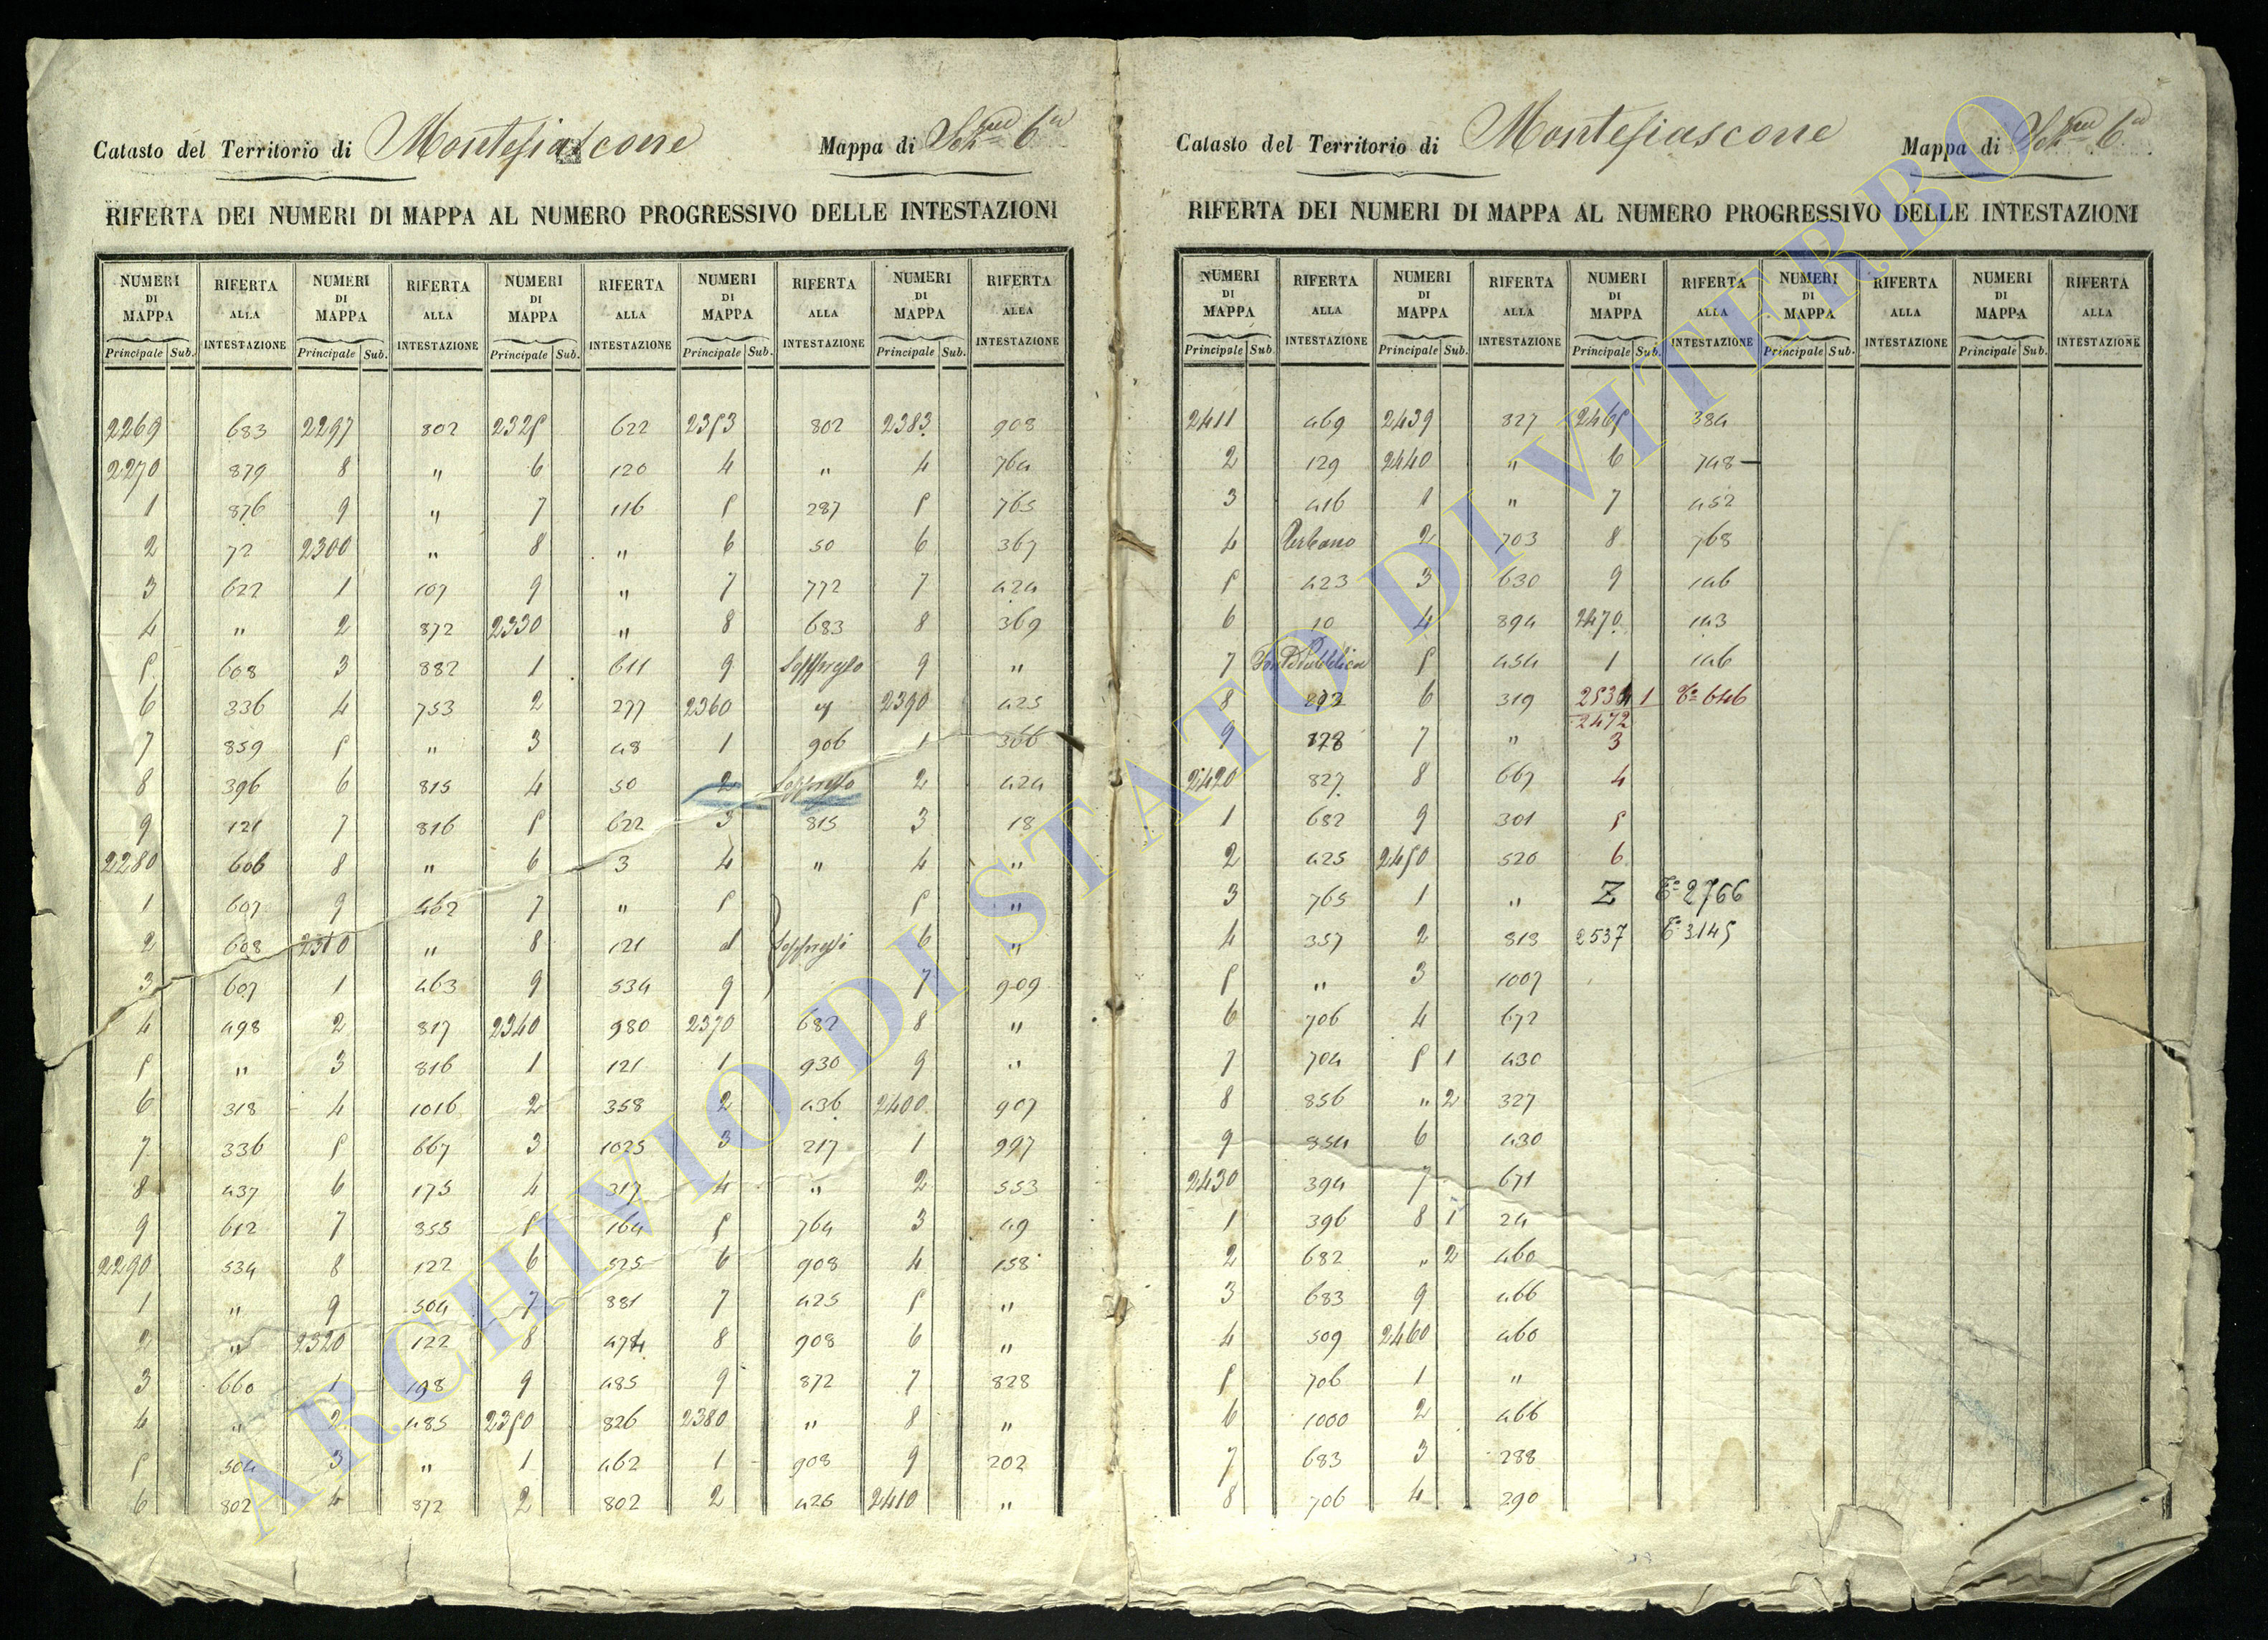 Catasto del Territorio di Montefiascone Mappa di Sez.ne 6a
RIFERTA DEI NUMERI DI MAPPA AL NUMERO PROGRESSIVO DELLE INTESTAZIONI
NUMERI DI MAPPA RIFERTA ALLA INTESTAZIONE NUMERI DI MAPPA RIFERTA ALLA INTESTAZIONE NUMERI DI MAPPA RIFERTA ALLA INTESTAZIONE NUMERI DI MAPPA RIFERTA ALLA INTESTAZIONE NUMERI DI MAPPA RIFERTA ALLA INTESTAZIONE
Principale Sub. Principale Sub. Principale Sub. Principale Sub. Principale Sub.
2269 683 2297 802 2325 622 2353 802 2383 908
2270 879 8 " 6 120 4 " 4 764
1 876 9 " 7 116 5 287 5 765
2 72 2300 " 8 " 6 50 6 367
3 622 1 107 9 " 7 772 7 424
4 " 2 872 2330 " 8 683 8 369
5 608 3 882 1 611 9 Soppresso 9 "
6 336 4 753 2 277 2360 " 2390 425
7 859 5 " 3 48 1 906 1 366
8 396 6 815 4 50 2 Soppresso 2 424
9 121 7 816 5 622 3 815 3 18
2280 606 8 " 6 3 4 " 4 "
1 607 9 462 7 " 5 5 "
2 608 2310 " 8 121 d Soppressi 6 "
3 607 1 463 9 534 9 7 909
4 498 2 817 2340 980 2370 682 8 "
5 " 3 816 1 121 1 930 9 "
6 318 4 1016 2 358 2 436 2400 907
7 336 5 667 3 1025 3 217 1 997
8 437 6 175 4 317 4 " 2 553
9 612 7 355 5 164 5 764 3 49
2290 534 8 122 6 525 6 908 4 158
1 " 9 504 7 881 7 425 5 "
2 " 2320 122 8 474 8 908 6 "
3 660 1 198 9 485 9 872 7 828
4 " 2 485 2350 826 2380 " 8 "
5 504 3 " 1 462 1 908 9 202
6 802 4 872 2 802 2 426 2410 "
Catasto del Territorio di Montefiascone Mappa di Sez.ne 6a
RIFERTA DEI NUMERI DI MAPPA AL NUMERO PROGRESSIVO DELLE INTESTAZIONI
NUMERI DI MAPPA RIFERTA ALLA INTESTAZIONE NUMERI DI MAPPA RIFERTA ALLA INTESTAZIONE NUMERI DI MAPPA RIFERTA ALLA INTESTAZIONE NUMERI DI MAPPA RIFERTA ALLA INTESTAZIONE NUMERI DI MAPPA RIFERTA ALLA INTESTAZIONE
Principale Sub. Principale Sub. Principale Sub. Principale Sub. Principale Sub.
2411 469 2439 827 2465 384
2 129 2440 " 6 748
3 416 1 " 7 452
4 Urbano 2 703 8 768
5 423 3 630 9 146
6 10 4 894 2470 143
7 Pubblica 5 454 1 146
8 293 6 319 1 646
2472
9 178 7 " 3
2420 827 8 667 4
1 682 9 301 5
2 425 2450 520 6
3 765 1 " Z 2766
4 357 2 818 2537 3145
5 " 3 1007
6 706 4 672
7 704 5 1 430
8 856 " 2 327
9 354 6 430
2430 394 7 671
1 396 8 1 24
2 682 " 2 460
3 683 9 466
4 509 2460 460
5 706 1 "
6 1000 2 466
7 683 3 288
8 706 4 290
ARCHIVIO DI STATO DI VITERBO